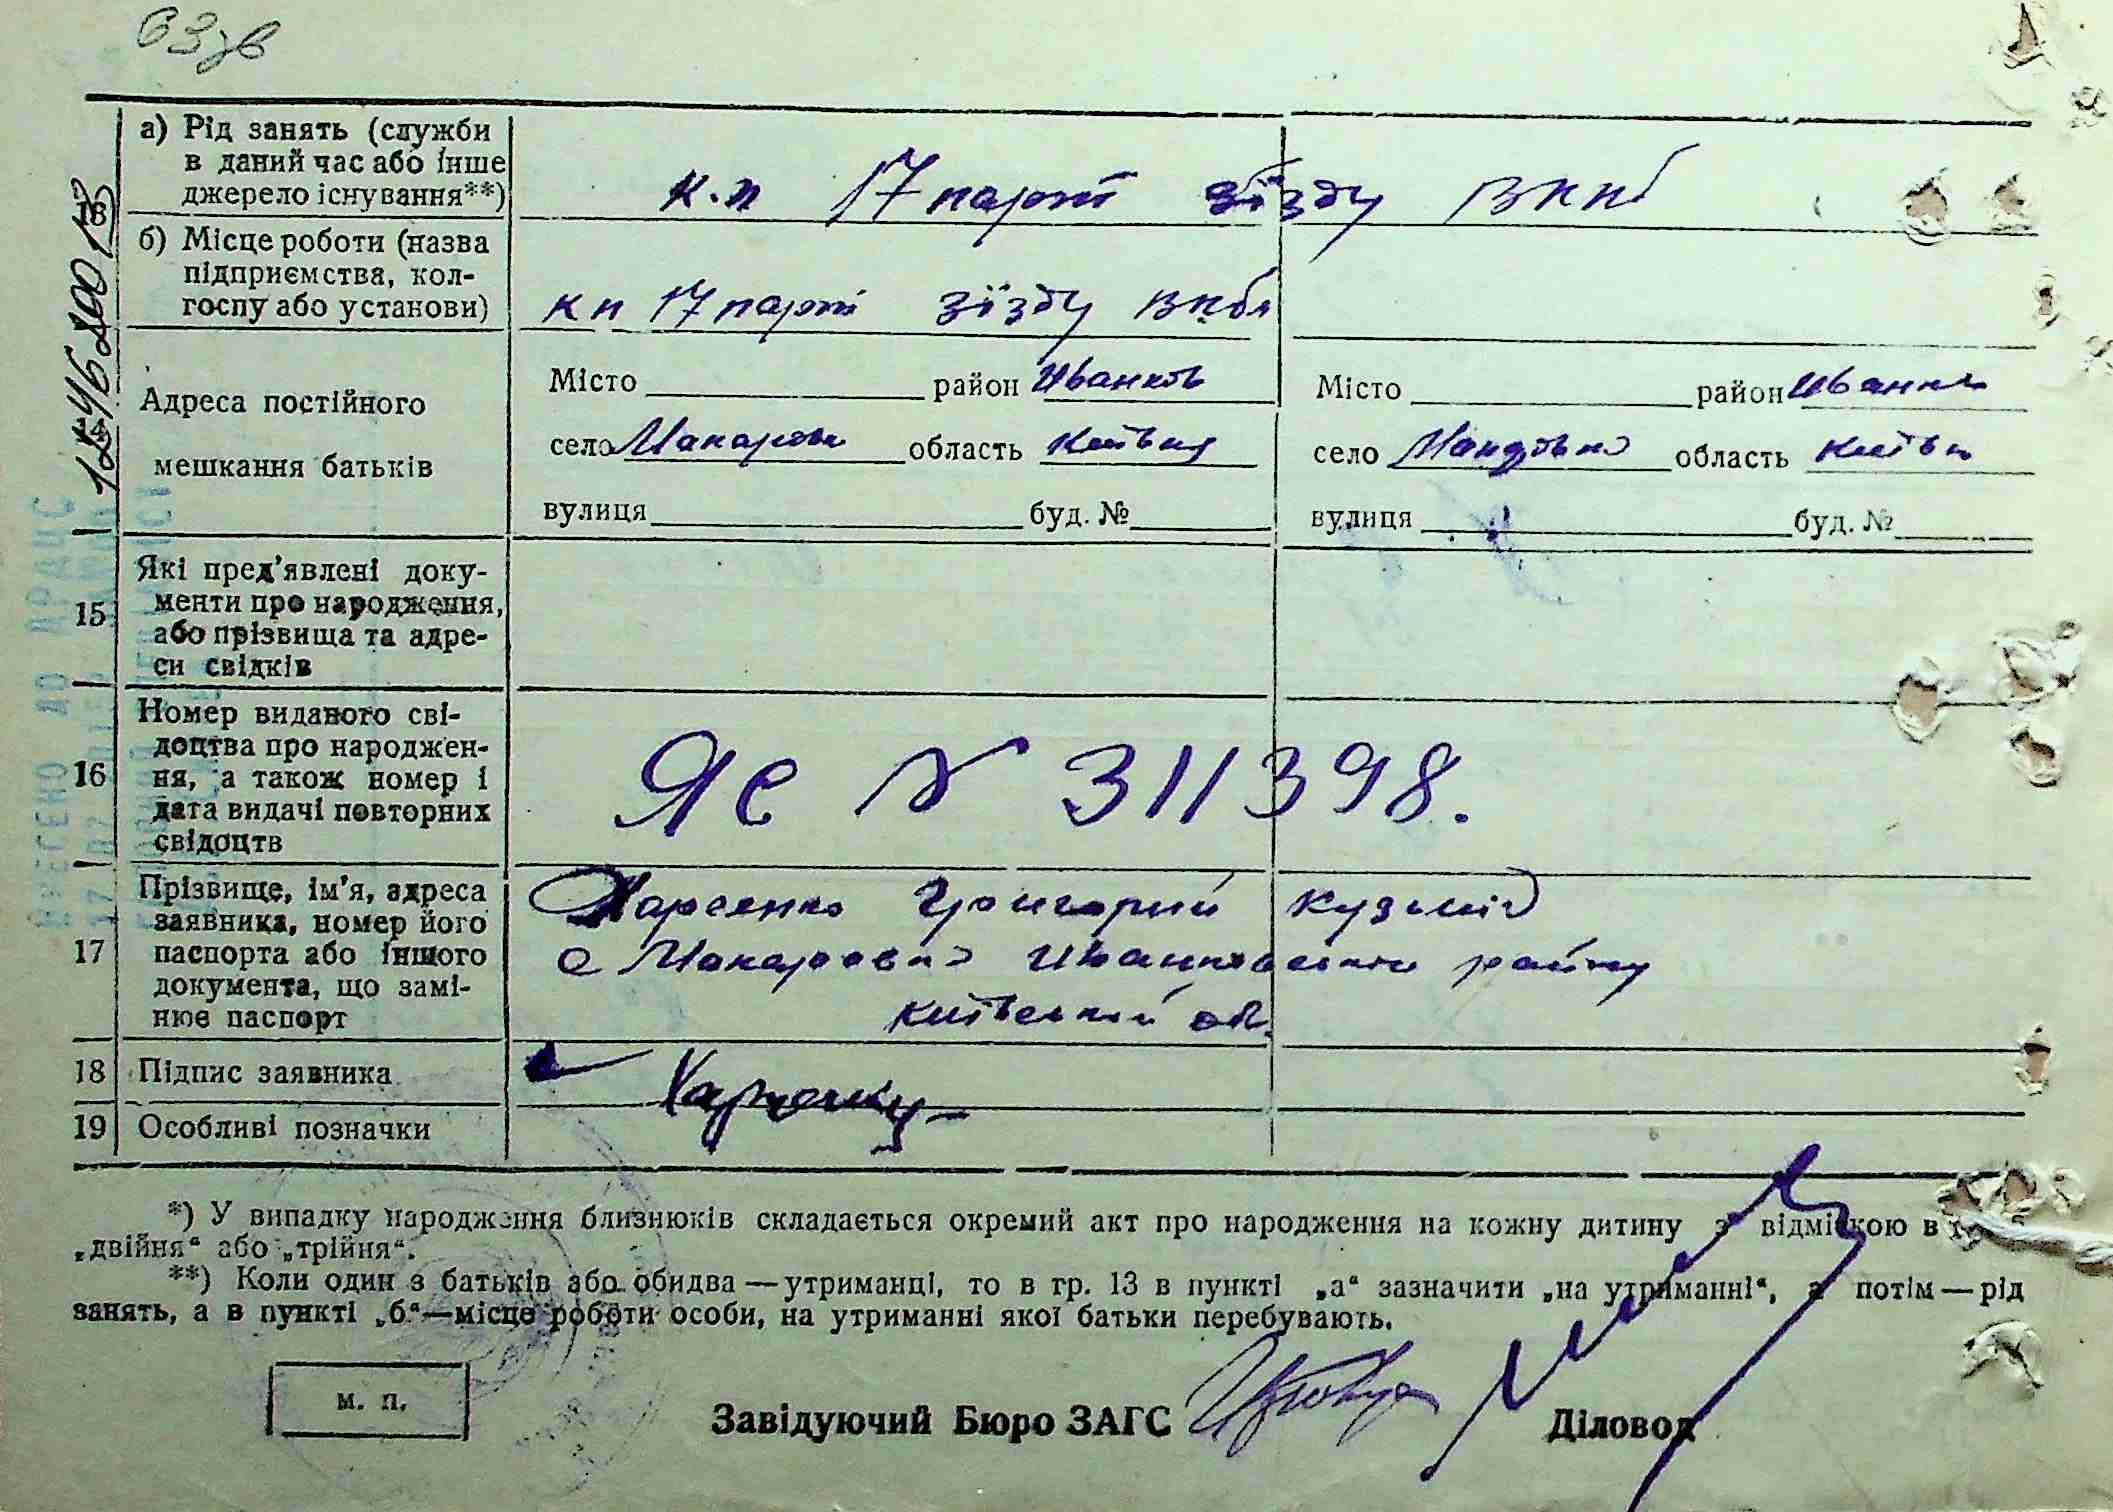 63 зв
а) Рід занять (служби
в даний час або інше
джерело існування**)
к.п 17 парт зїзду ВКПб
13
б) Місце роботи (назва
підприємства, кол-
госпу або установи)
кп 17 парт зїзду ВКПб
Адреса постійного
мешкання батьків
Місто район Иванков
село Макаровка область Київська
вулиця буд. №
Місто район Иванк
село Макарівка область Київсь
вулиця буд. №
15 Які пред'явлені доку-
менти про народження,
або прізвища та адре-
си свідків
16 Номер виданого сві-
доцтва про народжен-
ня, а також номер і
дата видачі повторних
свідоцтв
ЯС № 311398.
17 Прізвище, ім'я, адреса
заявника, номер його
паспорта або іншого
документа, що замі-
нює паспорт
Григорий Кузьмич
с Макаровка Иванковський району
Київський об.
18 Підпис заявника
19 Особливі позначки
*) У випадку народження близнюків складається окремий акт про народження на кожну дитину з відміткою в гр. 
„двійня“ або „трійня“.
**) Коли один з батьків або обидва—утриманці, то в гр. 13 в пункті „а“ зазначити „на утриманні“, а потім—рід
занять, а в пункті „б“—місце роботи особи, на утриманні якої батьки перебувають.
м. п.
Завідуючий Бюро ЗАГС Діловод